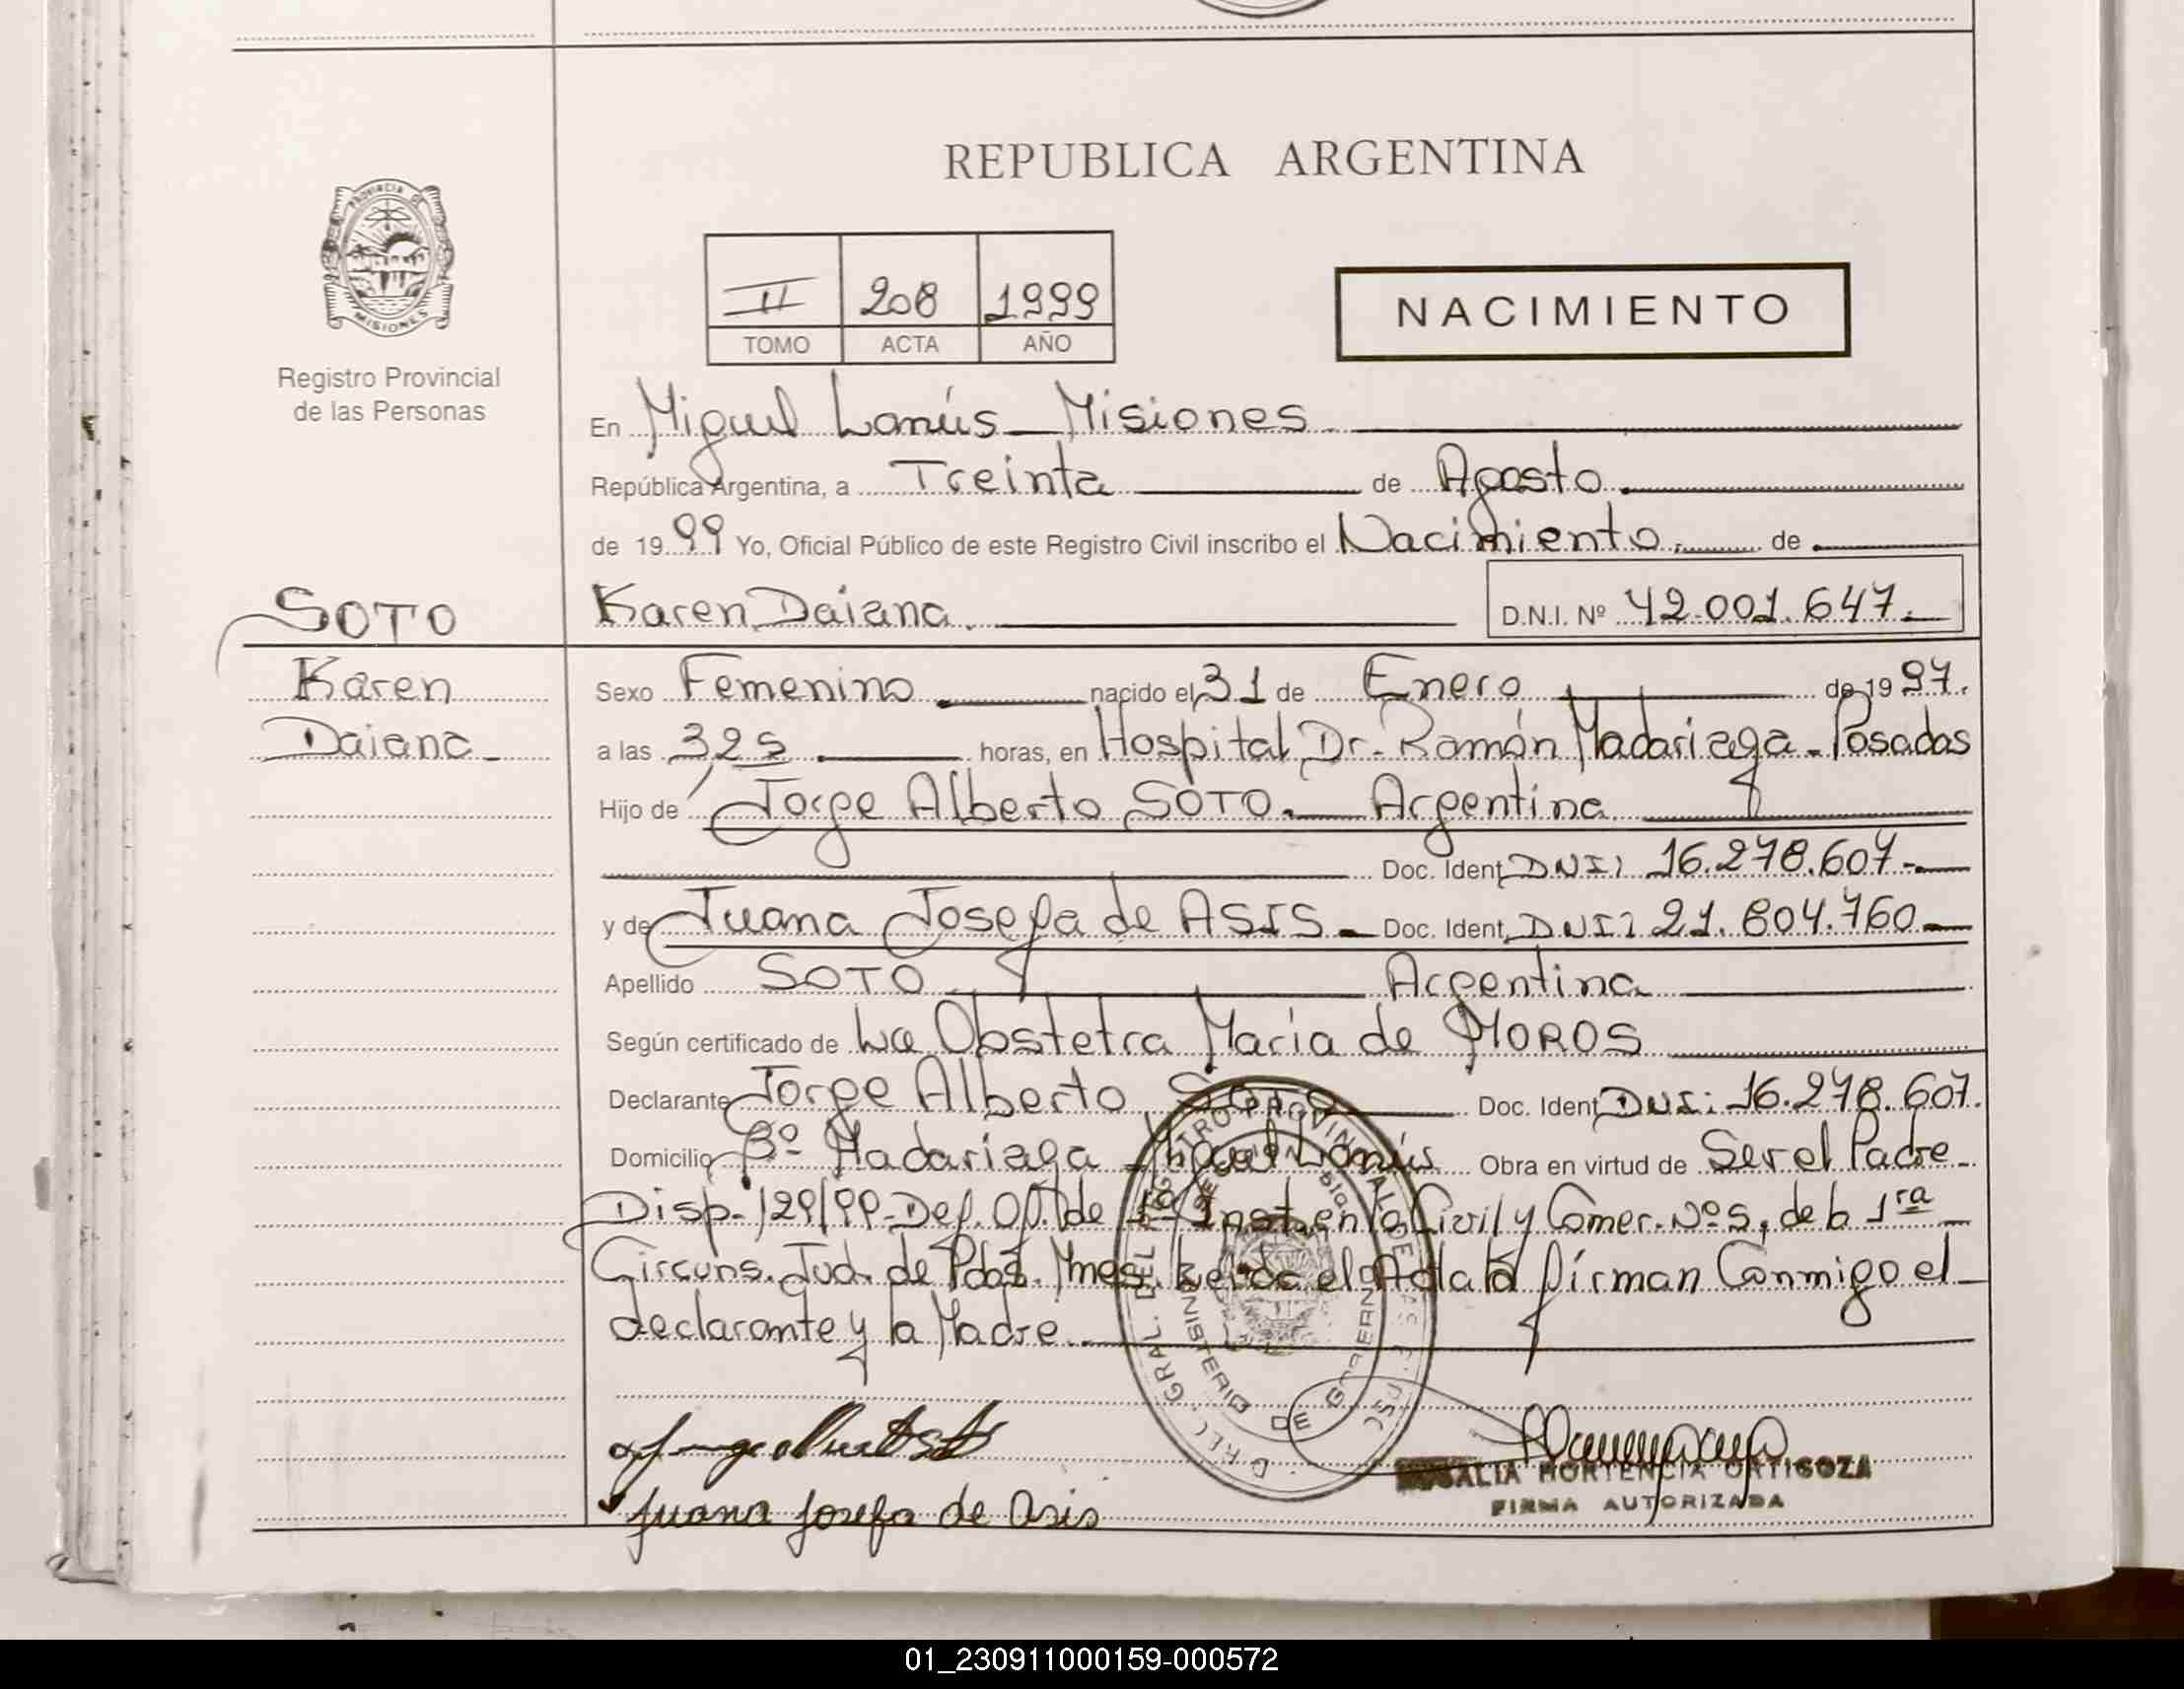 REPUBLICA ARGENTINA
PROVINCIA DE
MISIONES
Registro Provincial
de las Personas
II 208 1999
TOMO ACTA AÑO
NACIMIENTO
En Miguel Lanús - Misiones
República Argentina, a Treinta de Agosto
de 1999 Yo, Oficial Público de este Registro Civil inscribo el Nacimiento de
SOTO
Karen Daiana. D.N.I. Nº 42.001.647.
Karen
Daiana
Sexo Femenino nacido el 31 de Enero de 1997.
a las 3,25 horas, en Hospital Dr. Ramón Madariaga - Posadas
Hijo de Jorge Alberto SOTO. Argentina
Doc. Ident. DNI: 16.278.607
y de Juana Josefa de ASIS - Doc. Ident. DNI: 21.804.760
Apellido SOTO Argentina
Según certificado de La Obstetra María de MOROS
Declarante Jorge Alberto SOTO Doc. Ident. DNI: 16.278.607.
Domicilio Bº Madariaga - Miguel Lanús Obra en virtud de Ser el Padre
Disp. 129/99 - Def. Of. de 1ª Inst. en lo Civil y Comer. Nº 5, de la 1ra
Circuns. Jud. de Pdas. Mnes. Leída el Acta la firman Conmigo el
declarante y la Madre.
Jorge Alberto Soto
Juana Josefa de Asis
ROSALIA HORTENCIA ORTIGOZA
FIRMA AUTORIZADA
01_230911000159-000572